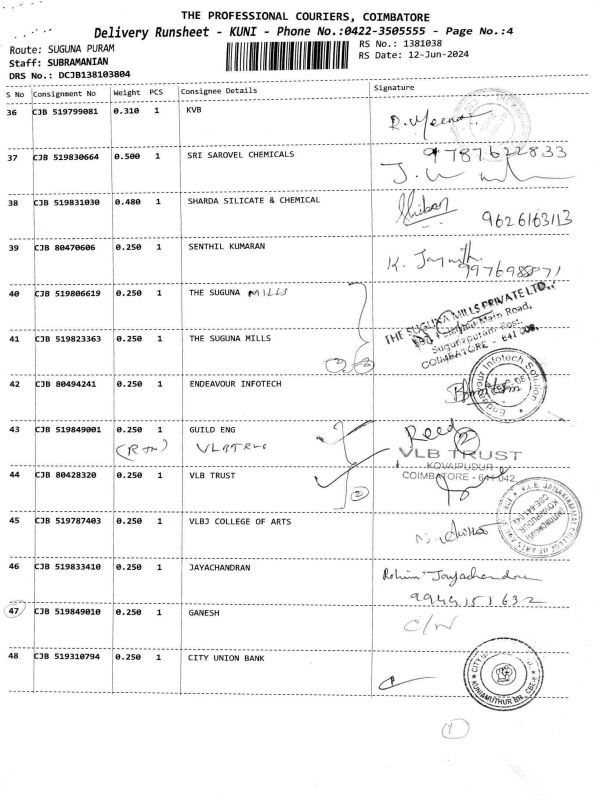 THE PROFESSIONAL COURIERS, COIMBATORE
Delivery Runsheet - KUNI - Phone No.:0422-3505555 - Page No.:4
Route: SUGUNA PURAM
RS No.: 1381038
Staff: SUBRAMANIAN
RS Date: 12-Jun-2024
DRS No.: DCJB138103804
S No Consignment No Weight PCS Consignee Details Signature
36 CJB 519799081 0.310 1 KVB
R. Meena
37 CJB 519830664 0.500 1 SRI SAROVEL CHEMICALS
9787622833
38 CJB 519831030 0.480 1 SHARDA SILICATE & CHEMICAL
9626163113
39 CJB 80470606 0.250 1 SENTHIL KUMARAN
K.
40 CJB 519806619 0.250 1 THE SUGUNA MILLS
THE SUGUNA MILLS PRIVATE LTD.,
Main Road,
Sugunapuram Post,
COIMBATORE - 641 008.
41 CJB 519823363 0.250 1 THE SUGUNA MILLS
42 CJB 80494241 0.250 1 ENDEAVOUR INFOTECH
Endeavour Infotech Solution
43 CJB 519849001 0.250 1 GUILD ENG
Recd 2
VLB TRUST
KOVAIPUDUR
COIMBATORE - 641 042
44 CJB 80428320 0.250 1 VLB TRUST
2
45 CJB 519787403 0.250 1 VLBJ COLLEGE OF ARTS
46 CJB 519833410 0.250 1 JAYACHANDRAN
Jayachandran
9944151632
47 CJB 519849010 0.250 1 GANESH
C/N
48 CJB 519310794 0.250 1 CITY UNION BANK
KUNIAMUTHUR BR. CBE-8
1